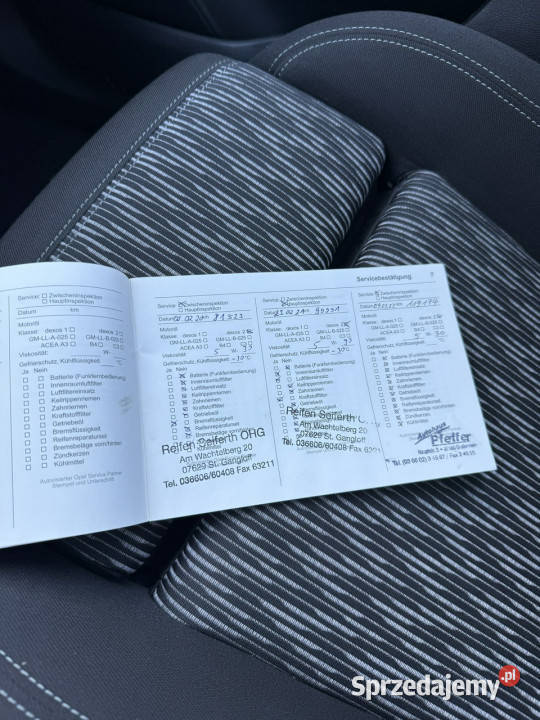 Servicebestätigung
Service: Zwischeninspektion
Hauptinspektion
Datum km
Motoröl
Klasse: dexos 1 dexos 2
GM-LL-A-025 GM-LL-B-025
ACEA A3 B4 C3
Viskosität: W-
Gefrierschutz, Kühlflüssigkeit: °C
Ja Nein
Batterie (Funkfernbedienung)
Innenraumluftfilter
Luftfiltereinsatz
Keilrippenriemen
Zahnriemen
Kraftstofffilter
Getriebeöl
Bremsflüssigkeit
Reifenreparaturset
Bremsbeläge vorn/hinten
Zündkerzen
Kühlmittel
Autorisierter Opel Service Partner
Stempel und Unterschrift
Service: Zwischeninspektion
Hauptinspektion
Datum km 81323
Motoröl
Klasse: dexos 1 dexos 2
GM-LL-A-025 GM-LL-B-025
ACEA A3 B4 C3
Viskosität: 5 W-
Gefrierschutz, Kühlflüssigkeit: -30°C
Ja Nein
Batterie (Funkfernbedienung)
Innenraumluftfilter
Luftfiltereinsatz
Keilrippenriemen
Zahnriemen
Kraftstofffilter
Getriebeöl
Bremsflüssigkeit
Reifenreparaturset
Reifen Seiferth OHG
Am Wachtelberg 20
07629 St. Gangloff
Tel. 036606/60408 Fax 63211
Service: Zwischeninspektion
Hauptinspektion
Datum
Motoröl
Klasse: dexos 1 dexos 2
GM-LL-A-025 GM-LL-B-025
ACEA A3 B4 C3
Viskosität: 5 W-
Gefrierschutz, Kühlflüssigkeit: -30°C
Ja Nein
Batterie (Funkfernbedienung)
Innenraumluftfilter
Luftfiltereinsatz
Keilrippenriemen
Zahnriemen
Kraftstofffilter
Reifen Seiferth
Am Wachtelberg 20
07629 St. Gangloff
Tel. 036606/60408 Fax
Service: Zwischeninspektion
Hauptinspektion
Datum
Motoröl
Klasse: dexos 1 dexos 2
GM-LL-A-025 GM-LL-B-025
ACEA A3 B4 C3
Viskosität: 5
Gefrierschutz, Kühlflüssigkeit:
Ja Nein
Batterie (Funkfernbedienung)
Innenraumluftfilter
Luftfiltereinsatz
Keilrippenriemen
Zahnriemen
Kraftstofffilter
Getriebeöl
Bremsflüssigkeit
Reifenreparaturset
Autohaus
Pfeffer
Sprzedajemy.pl